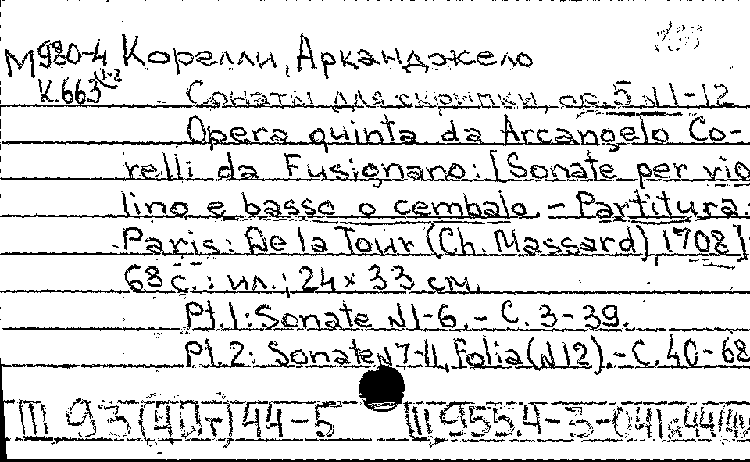 М980-4 Корелли, Арканджело
К.663 Сонаты для скрипки, ор.5 N1-12
Opera quinta da Arcangelo Co-
relli da Fusignano: [Sonate per vio
lino e basso o cembalo. - Partitura.
Paris: De la Tour (Ch. Massard), 1708]
68 с.: ил.; 24 × 33 см.
Pt.1: Sonate N1-6. - С. 3-39.
Pt.2: Sonate N7-11, Folia (N12). - С. 40-68
III, 93 44-5 III,955.4-3-041